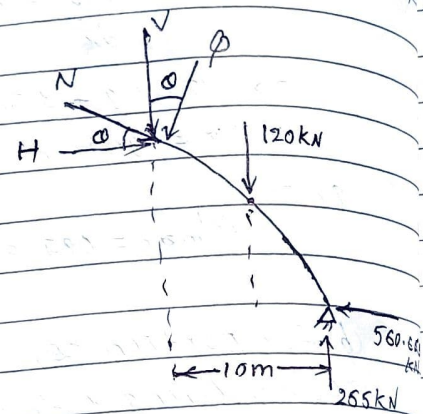 V
φ
N
θ
θ
H
120kN
560.661
KN
10m
265KN